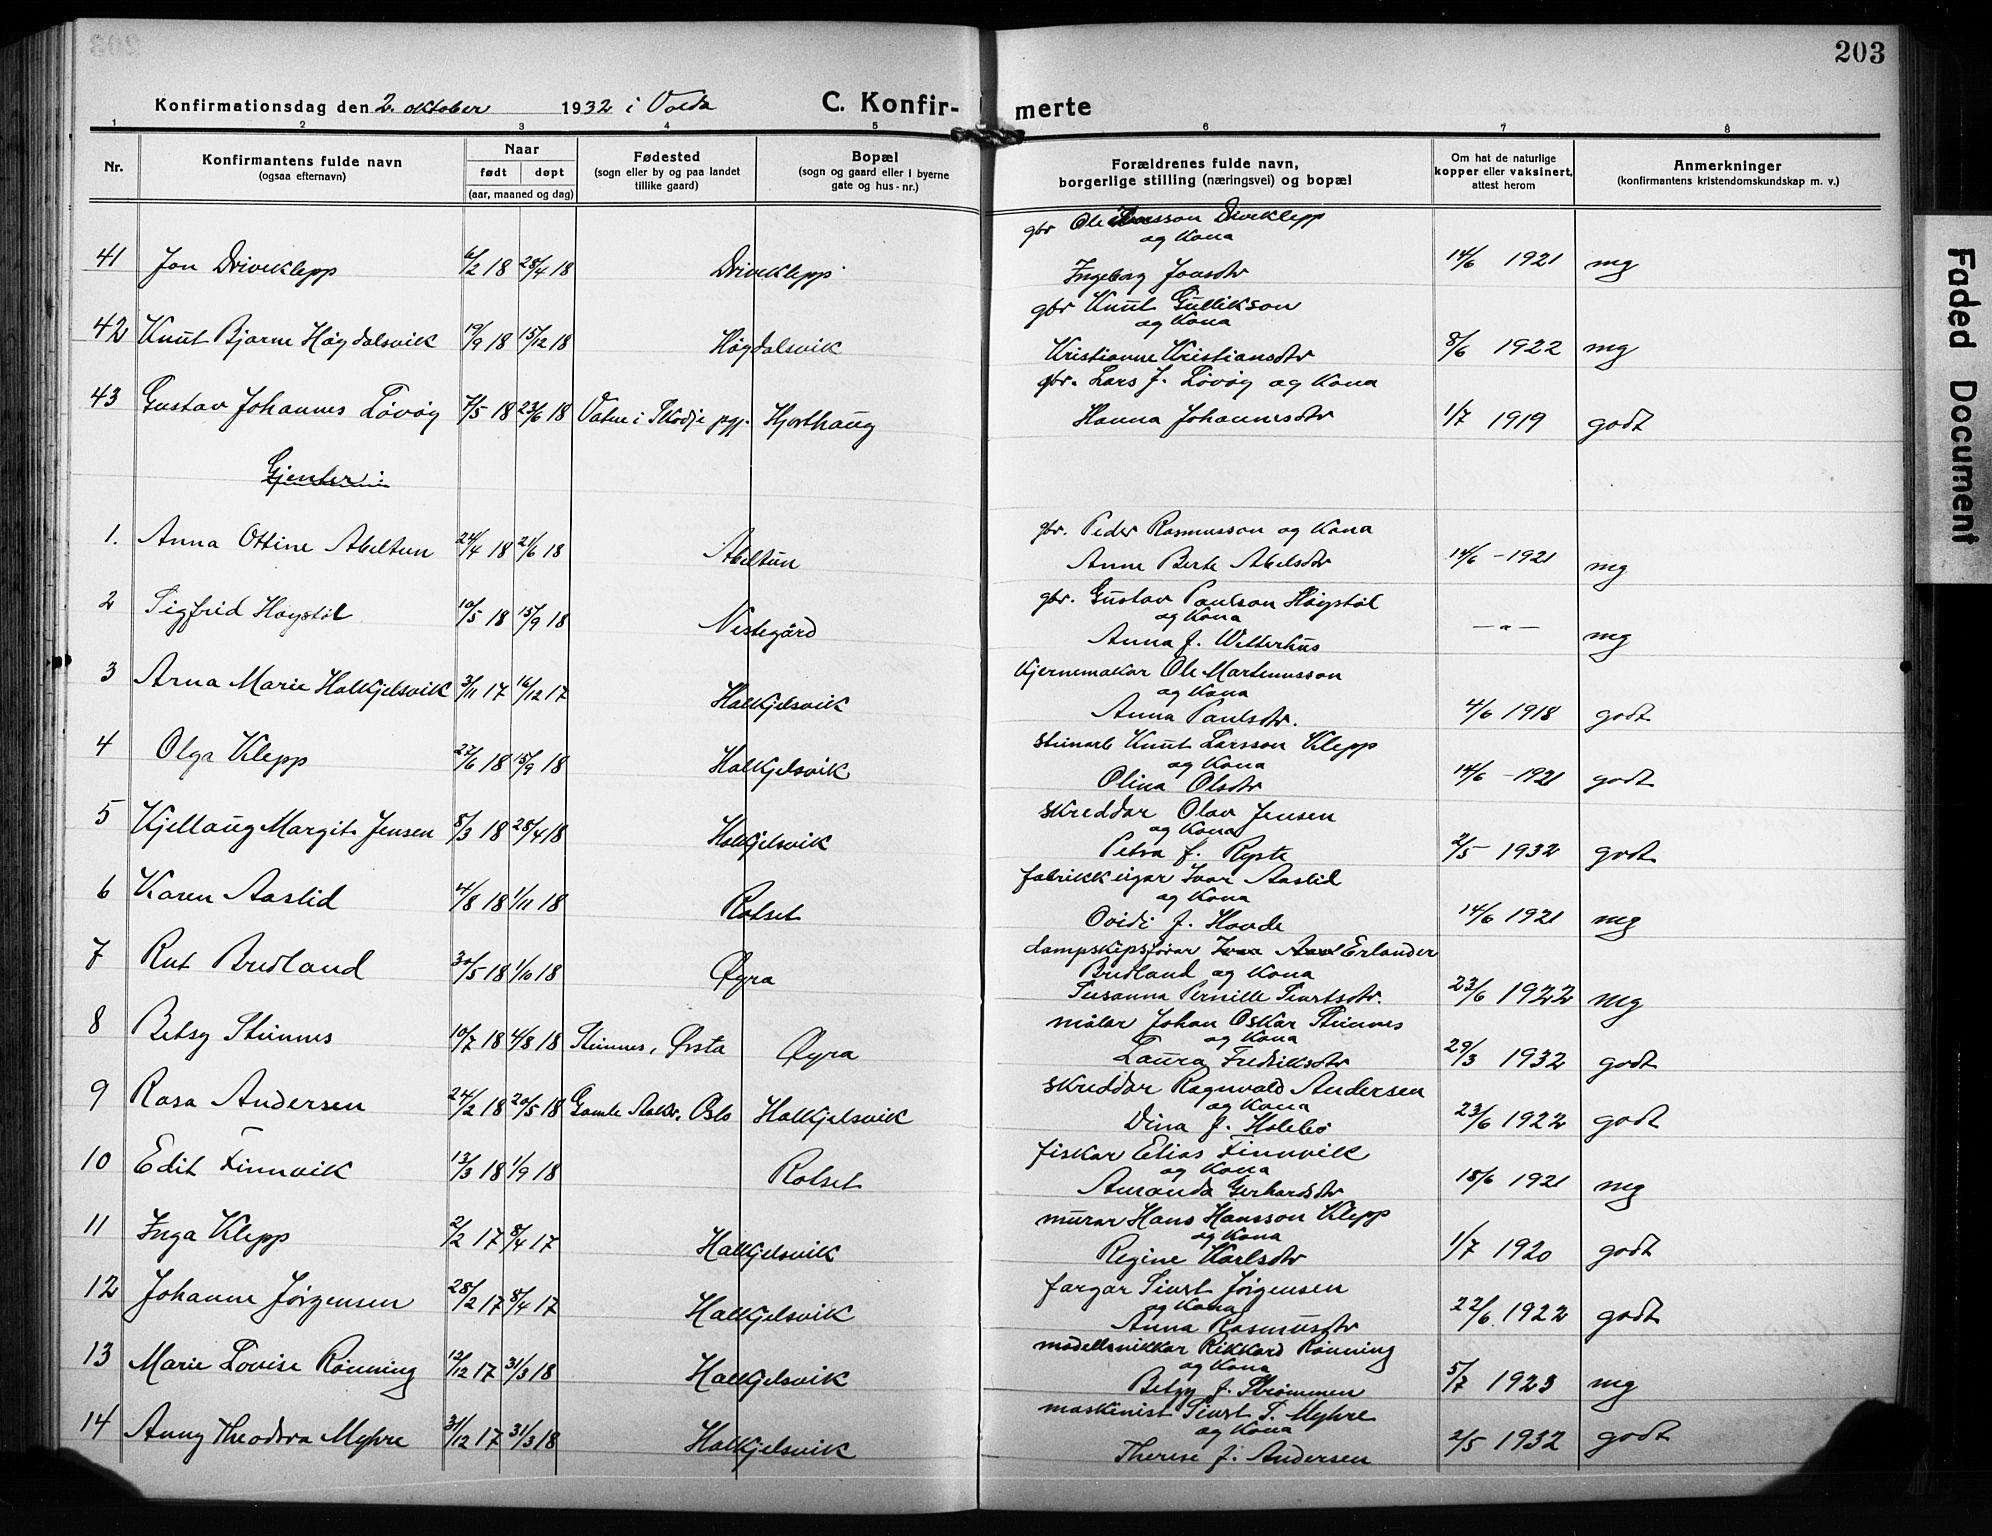 203
Konfirmationsdag den 2. oktober 1932 i Volda C. Konfir- merte
1 2 3 4 5 6 7 8
Nr. Konfirmantens fulde navn (ogsaa efternavn) Naar født døpt (aar, maaned og dag) Fødested (sogn eller by og paa landet tillike gaard) Bopæl (sogn og gaard eller i byerne gate og hus-nr.) Forældrenes fulde navn, borgerlige stilling (næringsvei) og bopæl Om hat de naturlige kopper eller vaksinert, attest herom Anmerkninger (konfirmantens kristendomskundskap m. v.)
gbr Ole Driveklepp
og kona
41 Jon Driveklepp 6/2 18 28/4 18 Driveklepp Ingeborg Jonsdtr 14/6 1921 mg
gbr Knut Gullikson
og kona
42 Knut Bjarne Høgdalsvik 19/9 18 15/12 18 Høgdalsvik Kristianne Kristiansdtr 8/6 1922 mg
gbr. Lars J. Løvøy og kona
43 Gustav Johannes Løvøy 7/5 18 23/6 18 Vatne i Skodje pgj. Hjorthaug Hanna Johannesdtr 1/7 1919 godt
Gjenter:
gbr. Peder Rasmusson og kona
1. Anna Ottine Abeltun 24/4 18 2/6 18 Abeltun Anne Berte Abelsdtr 14/6 - 1921 mg
gbr. Gustav Paulson Høystøl
og kona
2 Sigfrid Høystøl 10/5 18 15/9 18 Nestegård Anna f. Welterhus — " — mg
kjernemakar Ole Martinusson
og kona
3 Arna Marie Halkjelsvik 3/11 17 16/12 17 Halkjelsvik Anna Paulsdtr. 4/6 1918 godt
steinarb Knut Larsson Klepp
og kona
4 Olga Klepp 27/6 18 15/9 18 Halkjelsvik Olina Olsdtr 14/6 - 1921 godt
skreddar Olav Jensen
og kona
5 Kjellaug Margit Jensen 8/3 18 28/4 18 Halkjelsvik Petra f. Ryste 2/5 1932 godt
fabrikkeigar Ivar Aaslid
og kona
6 Karen Aaslid 4/8 18 1/11 18 Rotset Ovidi f. Hovde 14/6 1921 mg
dampskipsførar Ivar Erlander
Bredland og kona
7 Rut Bredland 30/5 18 1/10 18 Øyra Susanna Pernille Sivertsdtr. 23/6 1922 mg
målar Johan Oskar Steinnes
og kona
8 Betsy Steinnes 10/7 18 4/8 18 Steinnes, Ørsta Øyra Laura Fredriksdtr 29/3 1932 godt
skreddar Ragnvald Andersen
og kona
9 Rosa Andersen 24/2 18 20/5 18 Gamle Aaker, Oslo Halkjelsvik Dina f. Holebø 23/6 1922 godt
fiskar Elias Finnvik
og kona
10 Edit Finnvik 13/3 18 1/9 18 Rotset Amanda Gerhardsdtr 18/6 1921 mg
murar Hans Hansson Klepp
og kona
11 Inga Klepp 2/2 17 8/4 17 Halkjelsvik Regine Karlsdtr 1/7 1920 godt
fargar Sivert Jørgensen
og kona
12 Johanne Jørgensen 28/2 17 8/4 17 Halkjelsvik Anna Rasmusdtr 22/6 1922 godt
modellsnikkar Rikkard Rønning
og kona
13 Marie Lovise Rønning 12/12 17 31/3 18 Halkjelsvik Betzy f. Strømmen 5/7 1923 mg
maskinist Sivert T. Myhre
og kona
14 Anny Theodora Myhre 31/12 17 31/3 18 Halkjelsvik Therese f. Andersen 2/5 1932 godt
Faded Document